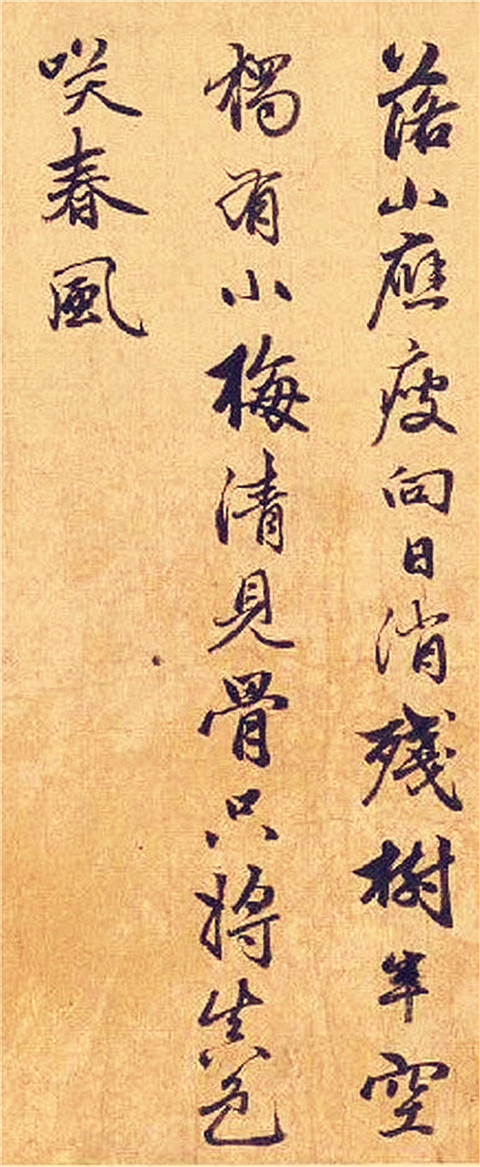 落山應瘦向日消殘樹半空
獨有小梅清見骨只將真色
咲春風